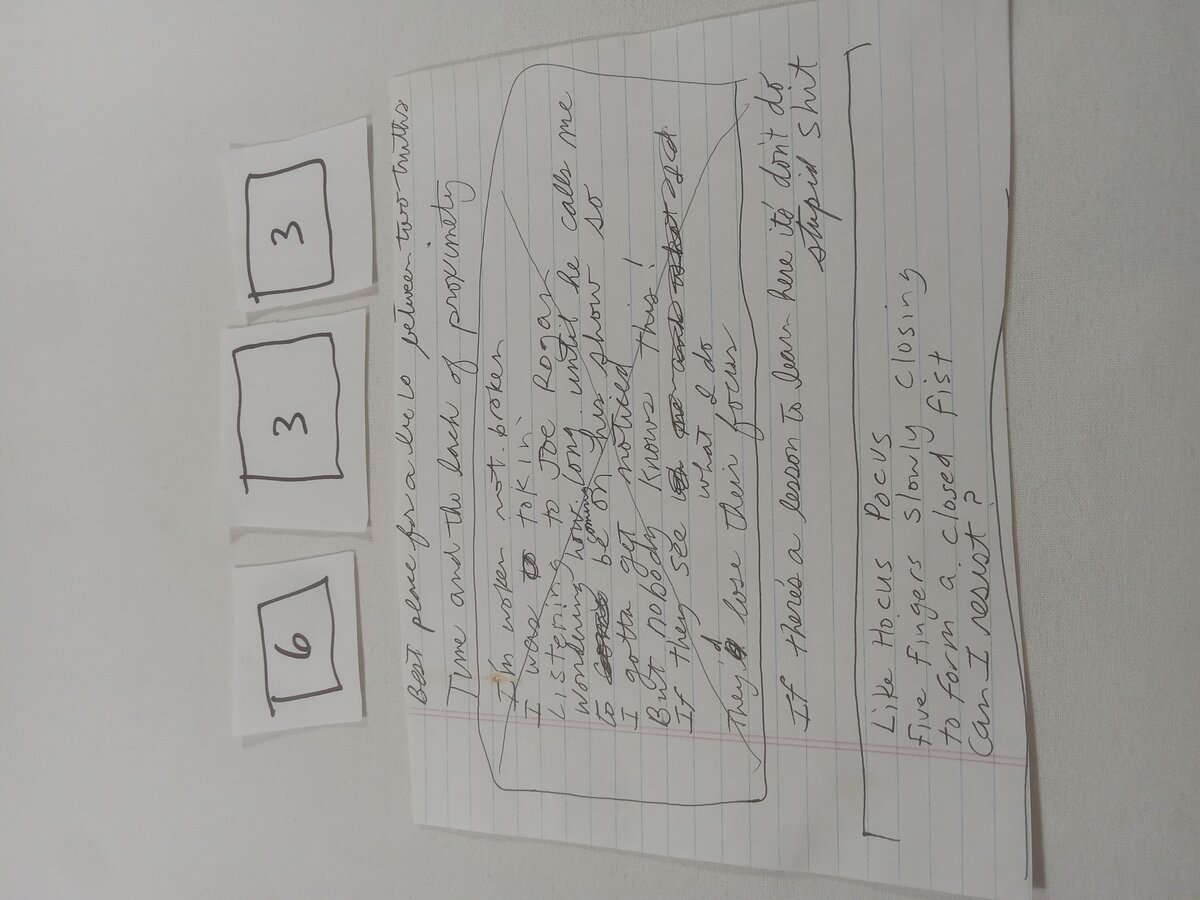 6 3 3
Best place for a lie is between two truths
Time and the lack of proximety
I'm woken not broken
I was to tokin
Listening to Joe Rogan
Wondering how long until he calls me
to be going on his show so
I gotta get noticed!
But nobody knows this!
If they see what I do
They'd lose their focus
If there's a lesson to learn here it's don't do
stupid shit
Like Hocus Pocus
Five fingers slowly closing
to form a closed fist
Can I resist?